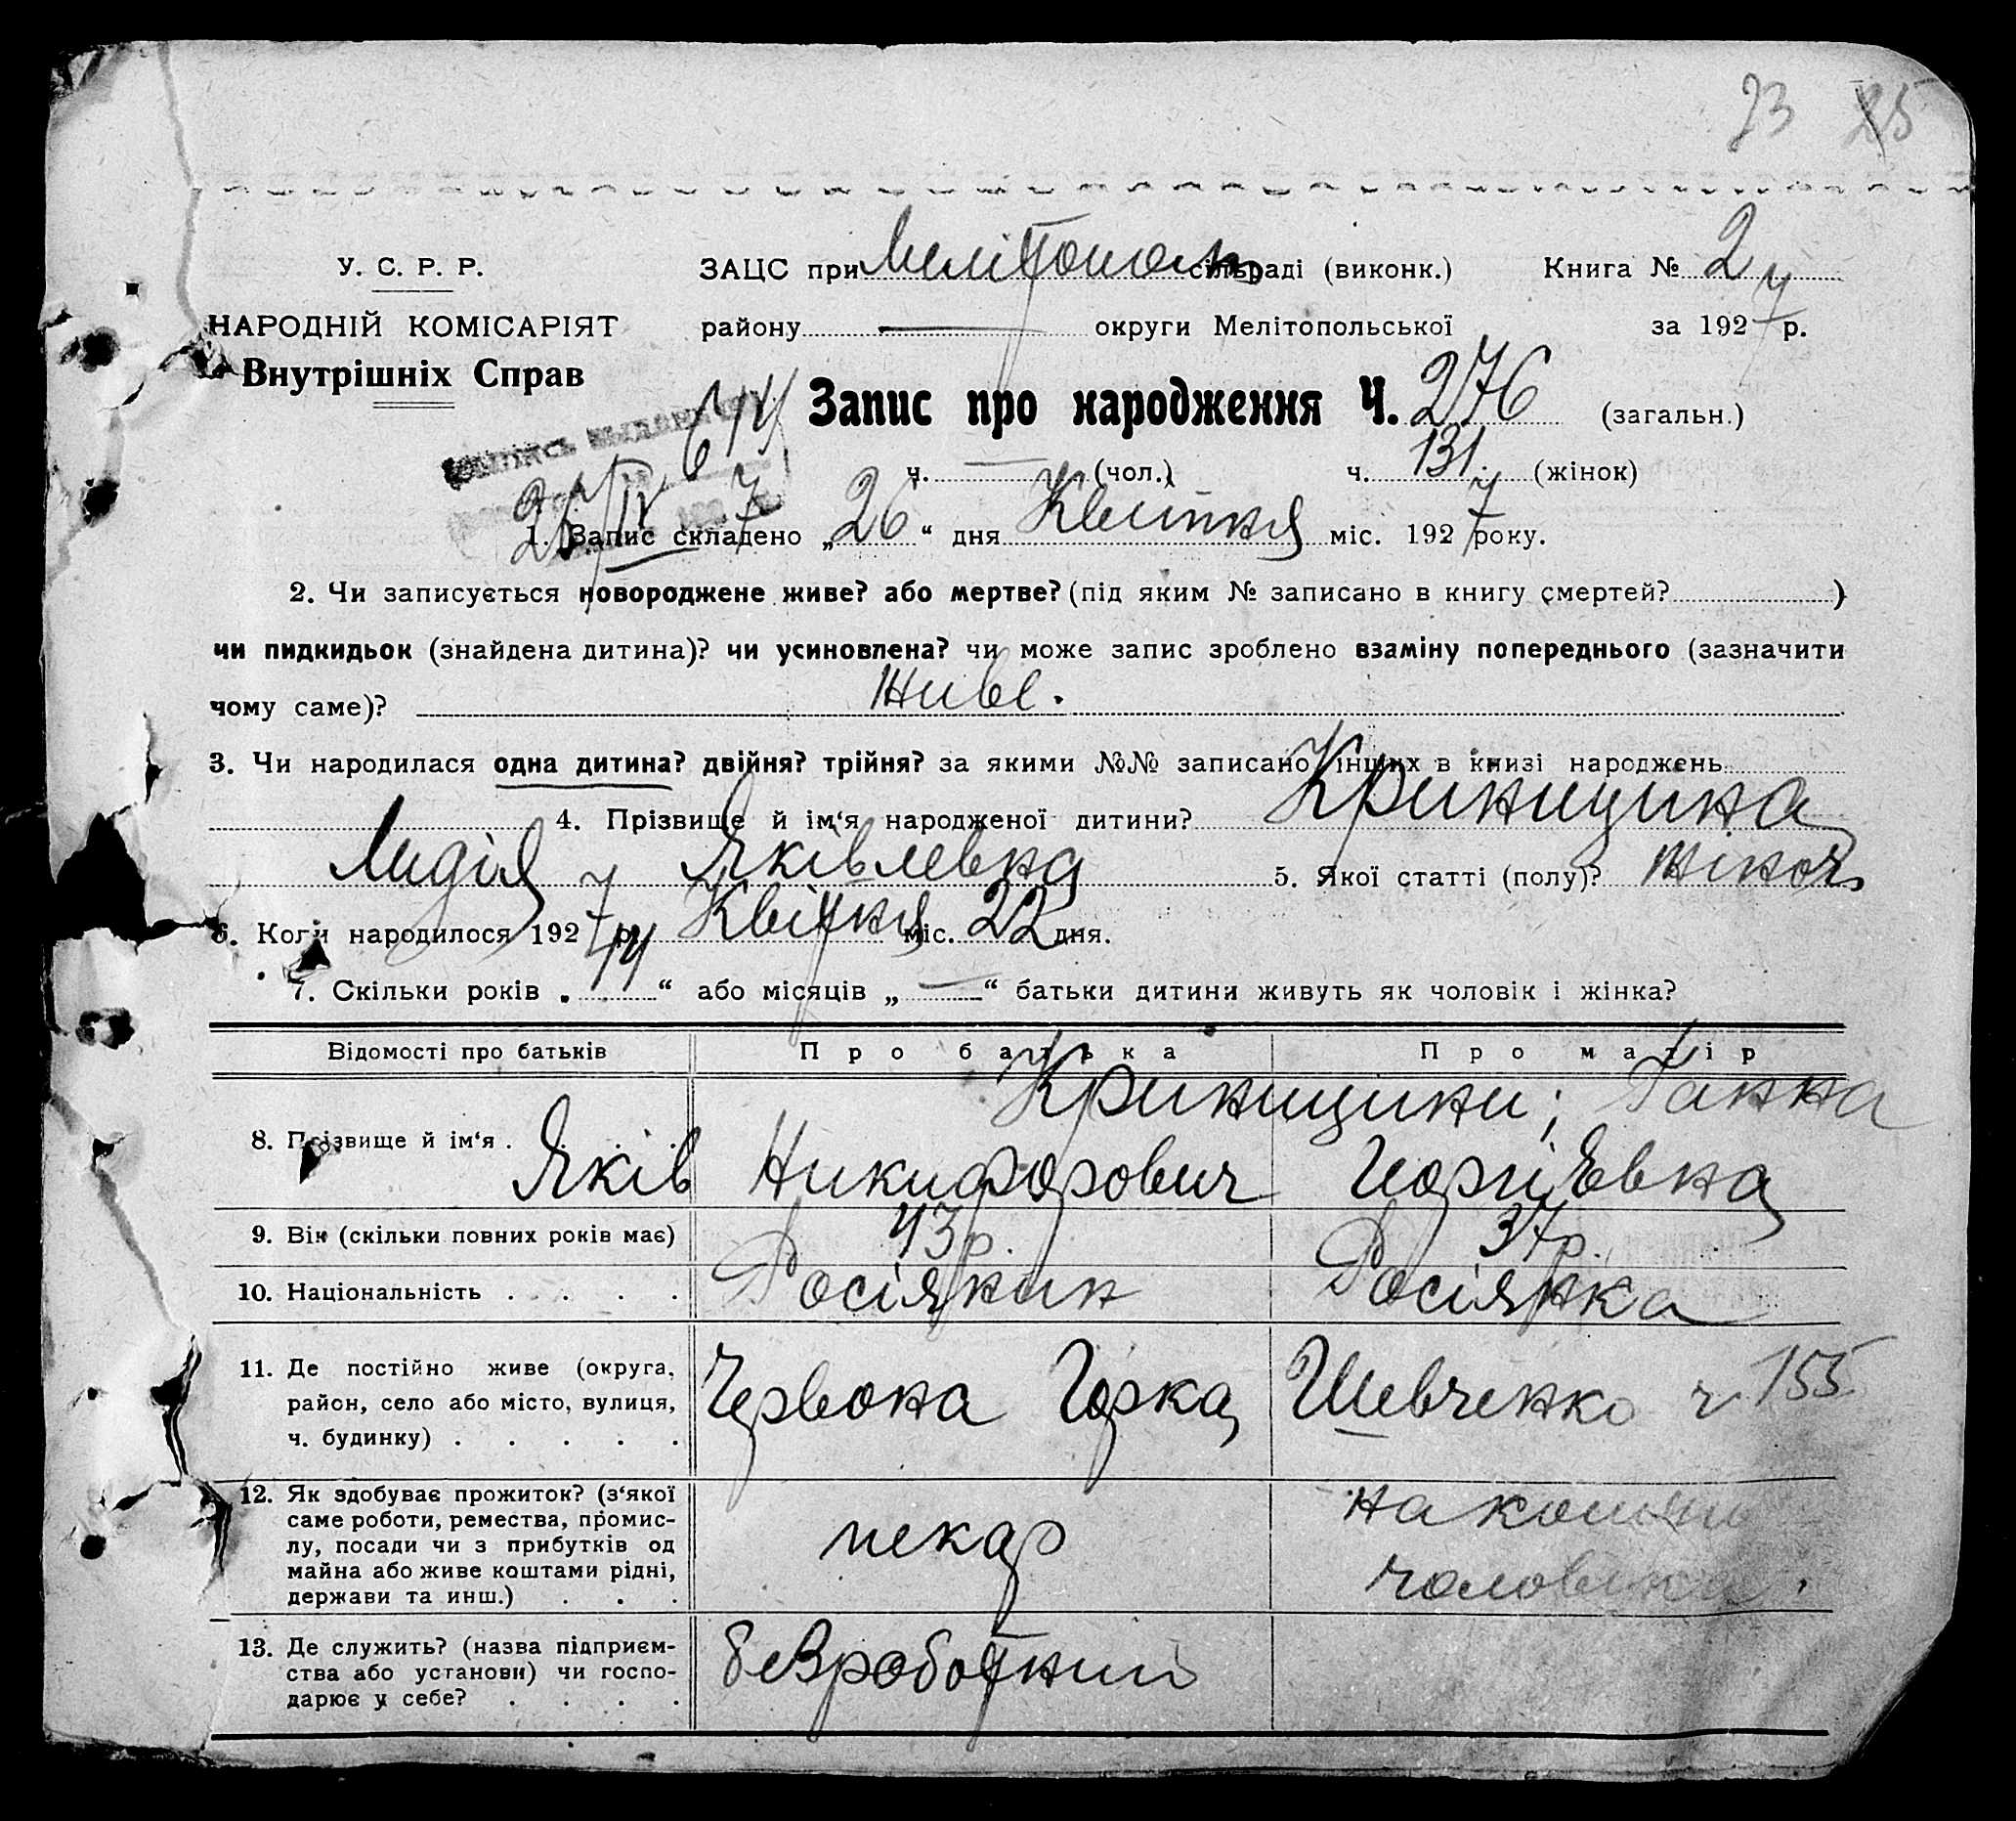 23 25
У. С. Р. Р.
НАРОДНІЙ КОМІСАРІЯТ
Внутрішніх Справ
ЗАЦС при Мелітополь сільраді (виконк.) Книга № 2
району — округи Мелітопольської за 1927 р.
Запис про народження Ч. 276 (загальн.)
ч. — (чол.) ч. 131. (жінок)
1. Запис складено „26“ дня Квітня міс. 1927 року.
2. Чи записується новороджене живе? або мертве? (під яким № записано в книгу смертей? )
чи пидкидьок (знайдена дитина)? чи усиновлена? чи може запис зроблено взаміну попереднього (зазначити
чому саме)? живе.
3. Чи народилася одна дитина? двійня? трійня? за якими №№ записано інших в книзі народжень
4. Прізвище й ім‘я народженої дитини? Криницина
Лидія Яківлевна 5. Якої статті (полу)? жіноч.
6. Коли народилося 1927 р. Квітня міс. 22 дня.
7. Скільки років „ “ або місяців „—“ батьки дитини живуть як чоловік і жінка?
Відомості про батьків Про батька Про матір
8. Прізвище й ім‘я . . . . Криницини; Ганна
Яків Никифорович Георгієвна
9. Вік (скільки повних років має) 43 р. 37 р.
10. Національність . . . . Росіянин Росіянка
11. Де постійно живе (округа,
район, село або місто, вулиця,
ч. будинку) . . . . . Червона Горка, Шевченко ч. 155
12. Як здобуває прожиток? (з‘якої
саме роботи, ремества, промис-
лу, посади чи з прибутків од
майна або живе коштами рідні,
держави та инш.) . . . пекар на кошти
чоловіка.
13. Де служить? (назва підприєм-
ства або установи) чи госпо-
дарює у себе? . . . . безроботний